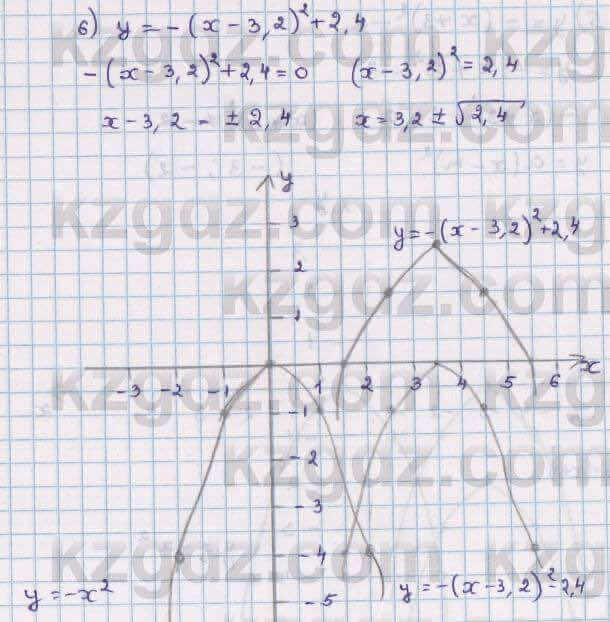 6) y = -(x - 3,2)² + 2,4
-(x - 3,2)² + 2,4 = 0 (x - 3,2)² = 2,4
x - 3,2 = ± 2,4 x = 3,2 ± √2,4
y
3
y = -(x - 3,2)² + 2,4
2
1
-3 -2 -1 1 2 3 4 5 6 x
-1
-2
-3
-4
y = -x²
y = -(x - 3,2)² - 2,4
-5
kzgdz.com